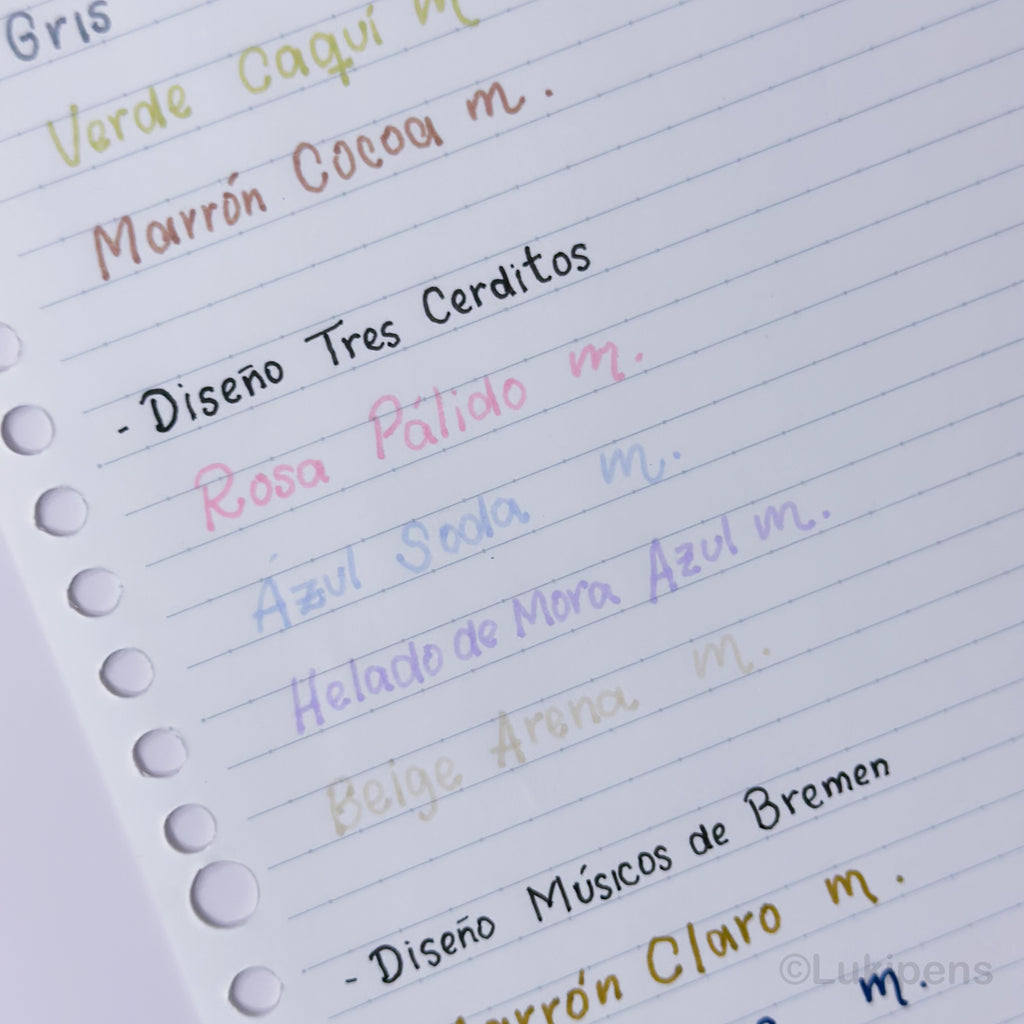 Gris
Verde Caquí m
Marrón Cocoa m.
- Diseño Tres Cerditos
Rosa Pálido m.
Ázul Soda m.
Helado de Mora Azul m.
Beige Arena m.
- Diseño Músicos de Bremen
Marrón Claro m.
m.
©Lukipens